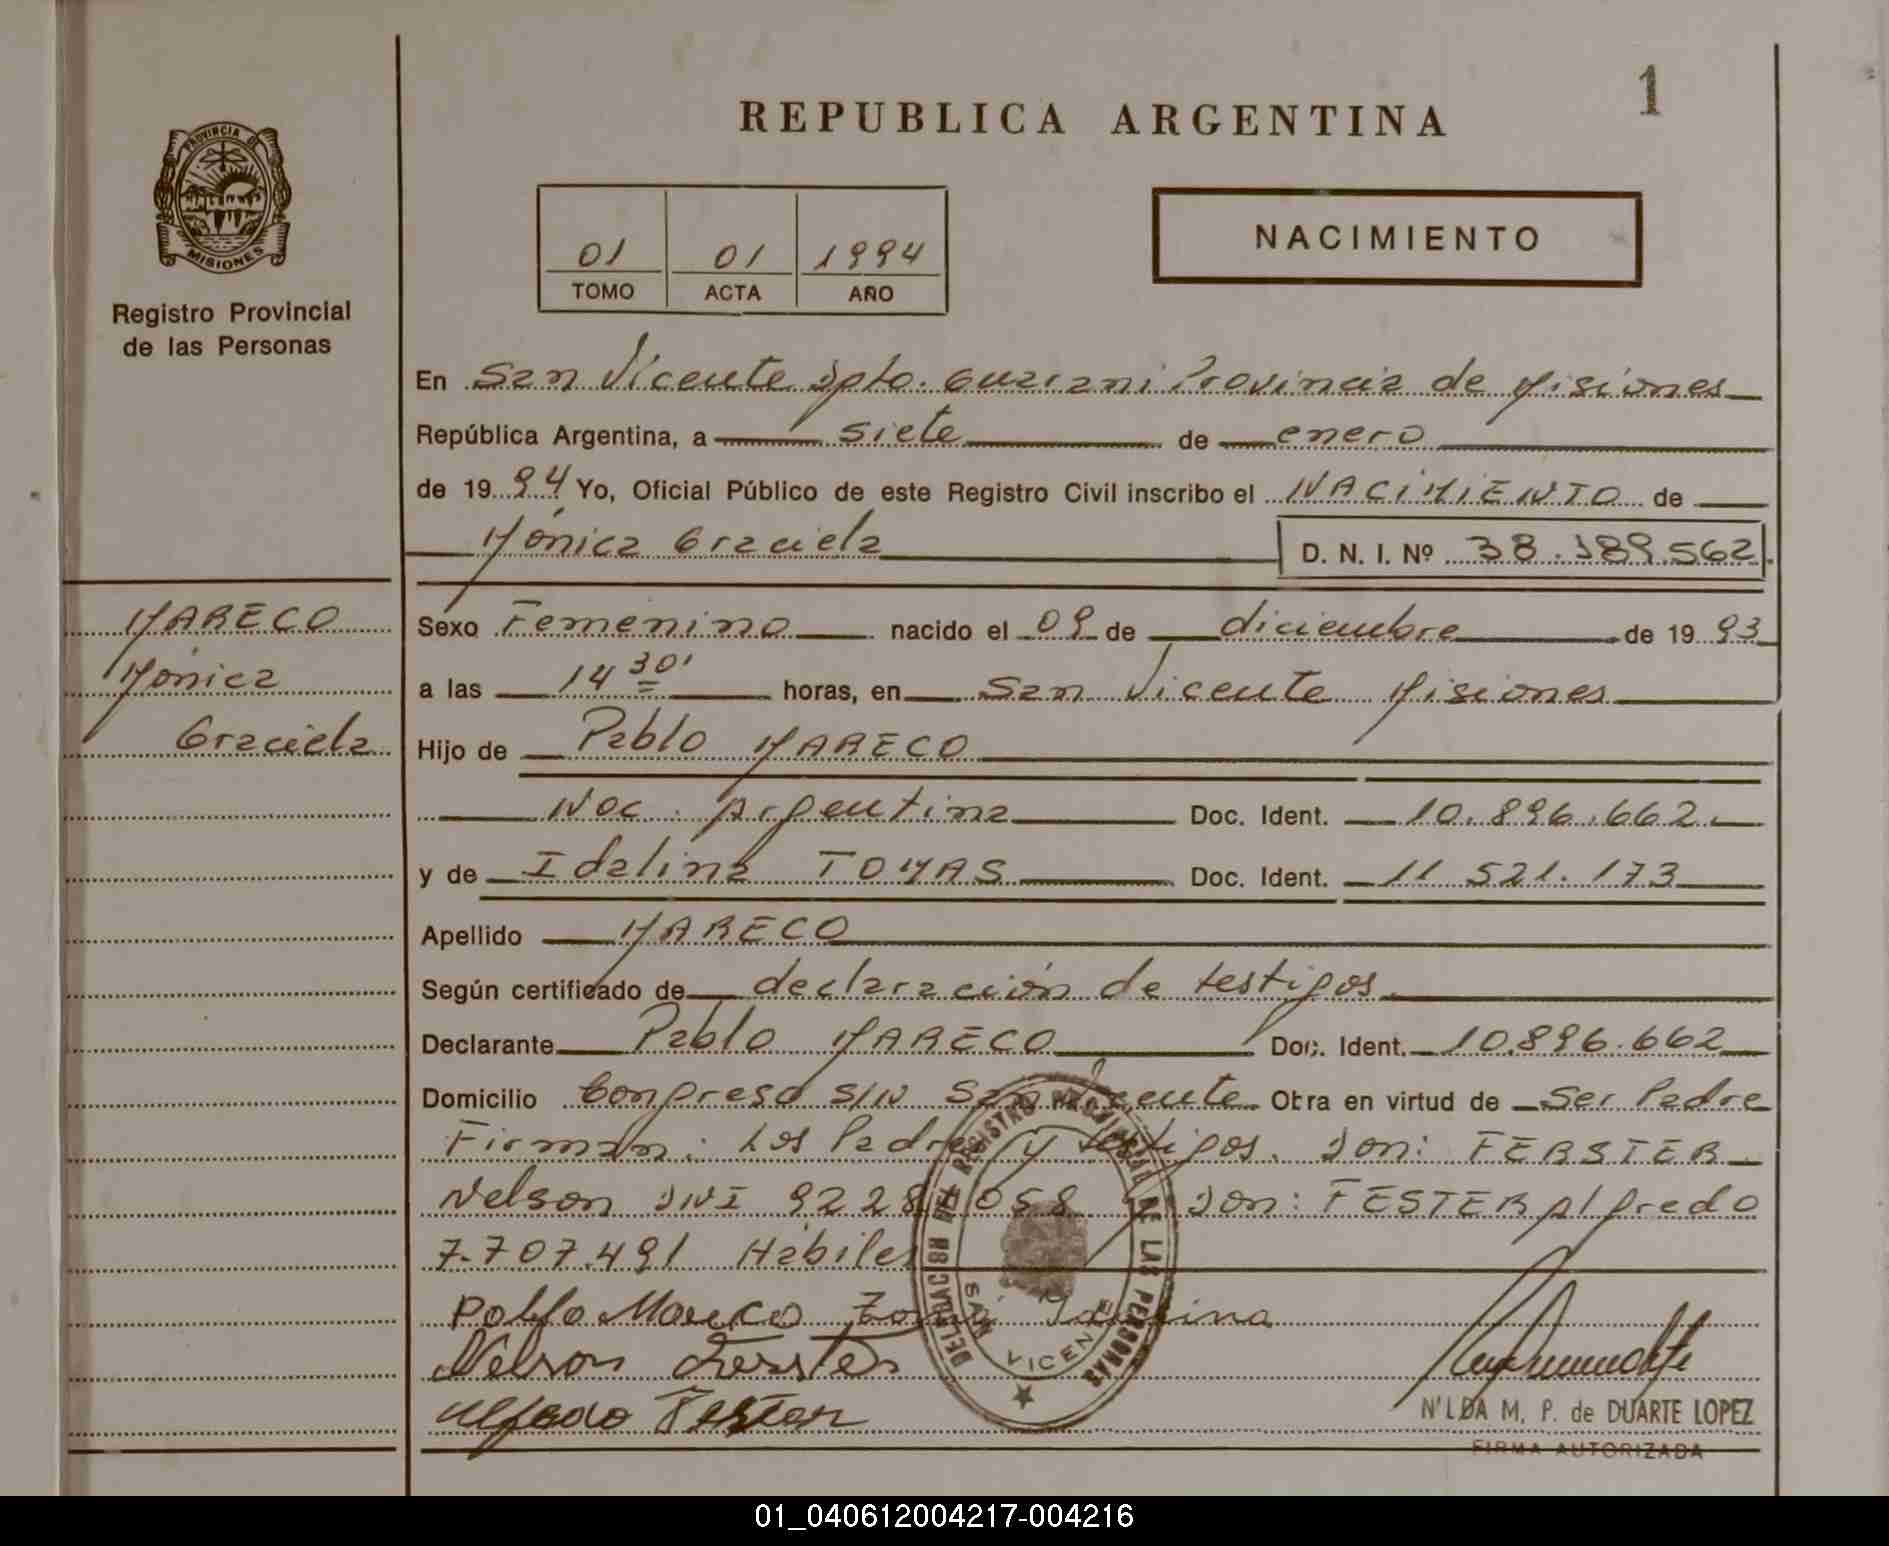 PROVINCIA DE
MISIONES
Registro Provincial
de las Personas
REPUBLICA ARGENTINA
1
01 01 1994
TOMO ACTA AÑO
NACIMIENTO
En San Vicente Dpto. Guarani Provincia de Misiones
República Argentina, a siete de enero
de 1994 Yo, Oficial Público de este Registro Civil inscribo el NACIMIENTO de
Mónica Graciela D. N. I. Nº 38.189.562
MARECO
Mónica
Graciela
Sexo Femenino nacido el 09 de diciembre de 1993
a las 14 30' horas, en San Vicente Misiones
Hijo de Pablo MARECO
Nac. Argentina Doc. Ident. 10.896.662.
y de Idalina TOMAS Doc. Ident. 11 521.173
Apellido MARECO
Según certificado de declaración de testigos.
Declarante Pablo MARECO Doc. Ident. 10.896.662
Domicilio Congreso S/N San Vicente Obra en virtud de Ser Padre
Firman: Los Padres y testigos. Don: FERSTER
Nelson DNI 9228.058 y Don: FESTER Alfredo
7.707.491 Hábiles
Pablo Mareco
Nelson Ferster
Alfredo Fester
DELEGACION DEL REGISTRO PROVINCIAL DE LAS PERSONAS
SAN VICENTE
NILDA M. P. de DUARTE LOPEZ
FIRMA AUTORIZADA
01_040612004217-004216